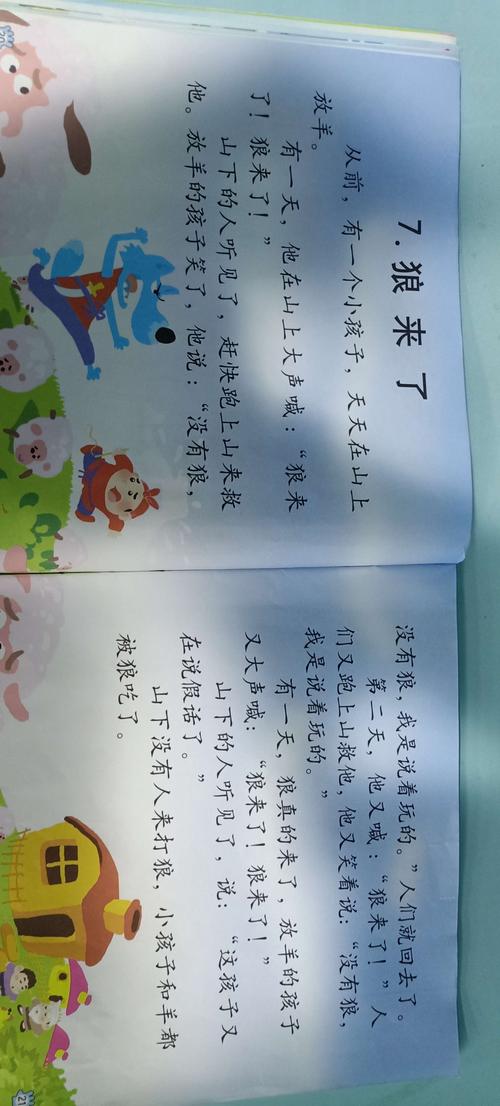 7.狼来了
从前，有一个小孩子，天天在山上
放羊。
有一天，他在山上大声喊：“狼来
了！狼来了！”
山下的人听见了，赶快跑上山来救
他。放羊的孩子笑了，他说：“没有狼，
20
没有狼，我是说着玩的。”人们就回去了。
第二天，他又喊：“狼来了！”人
们又跑上山救他，他又笑着说：“没有狼，
我是说着玩的。”
有一天，狼真的来了，放羊的孩子
又大声喊：“狼来了！狼来了！”
山下的人听见了，说：“这孩子又
在说假话了。”
山下没有人来打狼，小孩子和羊都
被狼吃了。
21